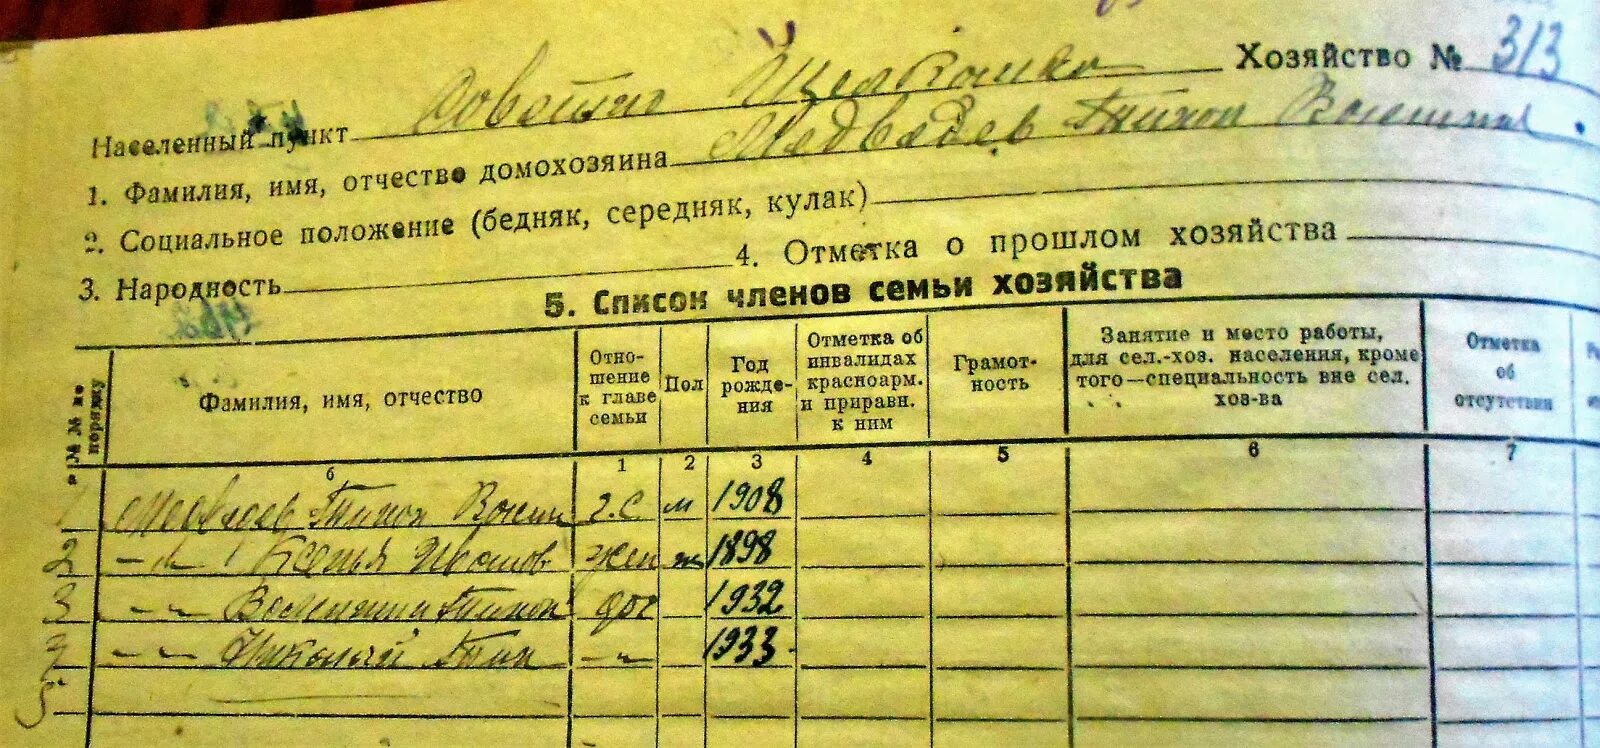 Хозяйство № 313
Населенный пункт
1. Фамилия, имя, отчество домохозяина Медведев Тихон
2. Социальное положение (бедняк, середняк, кулак)
3. Народность 4. Отметка о прошлом хозяйства
5. Список членов семьи хозяйства
№ № по порядку Фамилия, имя, отчество Отно- шение к главе семьи Пол Год рожде- ния Отметка об инвалидах красноарм. и приравн. к ним Грамот- ность Занятие и место работы, для сел.-хоз. населения, кроме того—специальность вне сел. хоз-ва Отметка об отсутствии
б 1 2 3 4 5 6 7
1 Медведев Тихон г.с. м 1908
2 —„— Ксенья Иванов жен ж 1898
3 —„— Тихон 1932
4 —„— Николай Тих —„— 1933
5